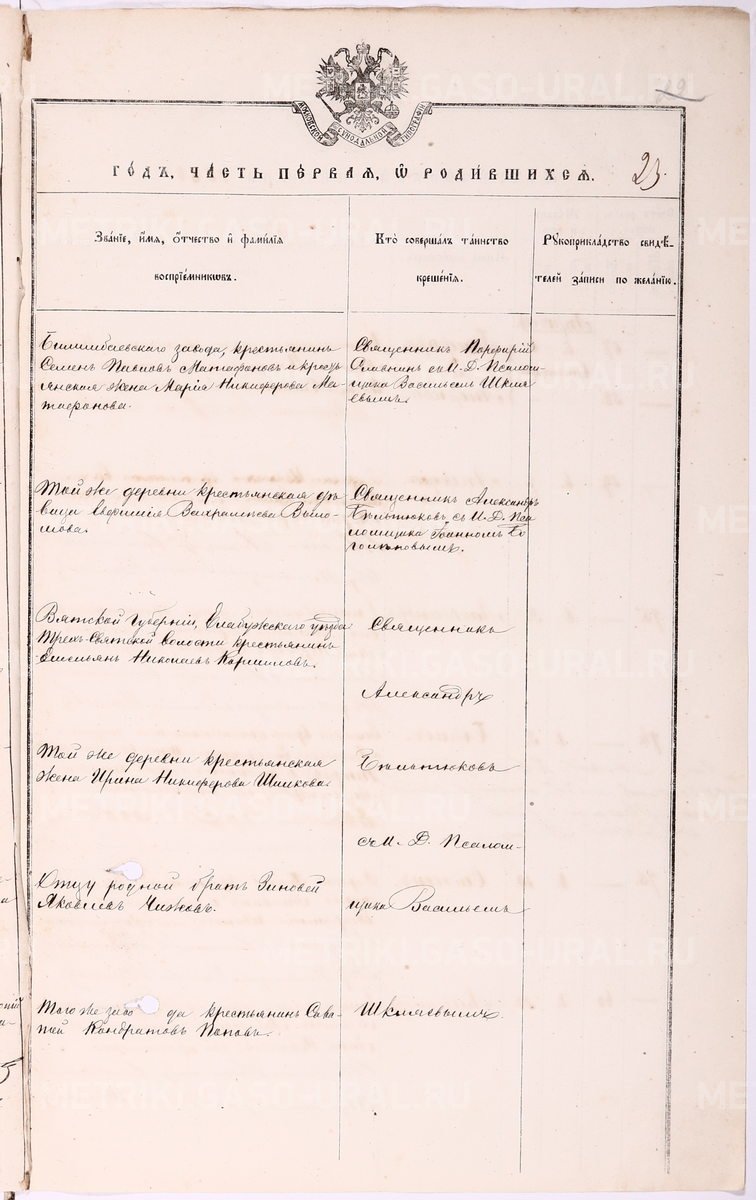 МОСКОВСКОЙ СѴНОДАЛЬНОЙ ТИПОГРАФІИ
22
ГО́ДЪ, ЧА́СТЬ ПЕ́РВАЯ, Ѽ РОДИ́ВШИХСЯ.
23.
Зва́нїе, и҆́мя, ѻ҆́тчество и҆ фами́лїя
воспрїе́мникωвъ.
Кто̀ соверша́лъ та́инство
креще́нїя.
Рꙋкоприкла́дство свидѣ́-
телей за́писи по жела́нїю.
Билимбаевскаго завода, крестьянинъ
Семенъ Павловъ Матафоновъ и кресть
янская жена Марія Никифорова Ма-
тафонова.
Священникъ Порфирій
Славнинъ съ И. Д. Псалом
щика Васильемъ Шкля
евымъ.
Той же деревни крестьянская дѣ
вица Евфимія Вахрамѣева
Священникъ Александръ
Бѣльтюковъ съ И. Д. Пса
ломщика Іоанномъ Бо
голѣповымъ.
Вятской Губерніи, Елабужскаго уѣзда
Трехъ-Святской Волости крестьянинъ
Емельянъ Николаевъ Кормиловъ.
Священникъ
Александръ
Той же деревни крестьянская
жена Ирина Никифорова Шилкова.
Бѣльтюковъ
съ И. Д. Псалом-
Отцу родной братъ Зиновей
Яковлевъ Чижовъ.
щика Васильемъ
Того же заво да крестьянинъ Сава-
тей Кондратовъ Поповъ.
Шкляевымъ.
METRIKI.GASO-URAL.RU